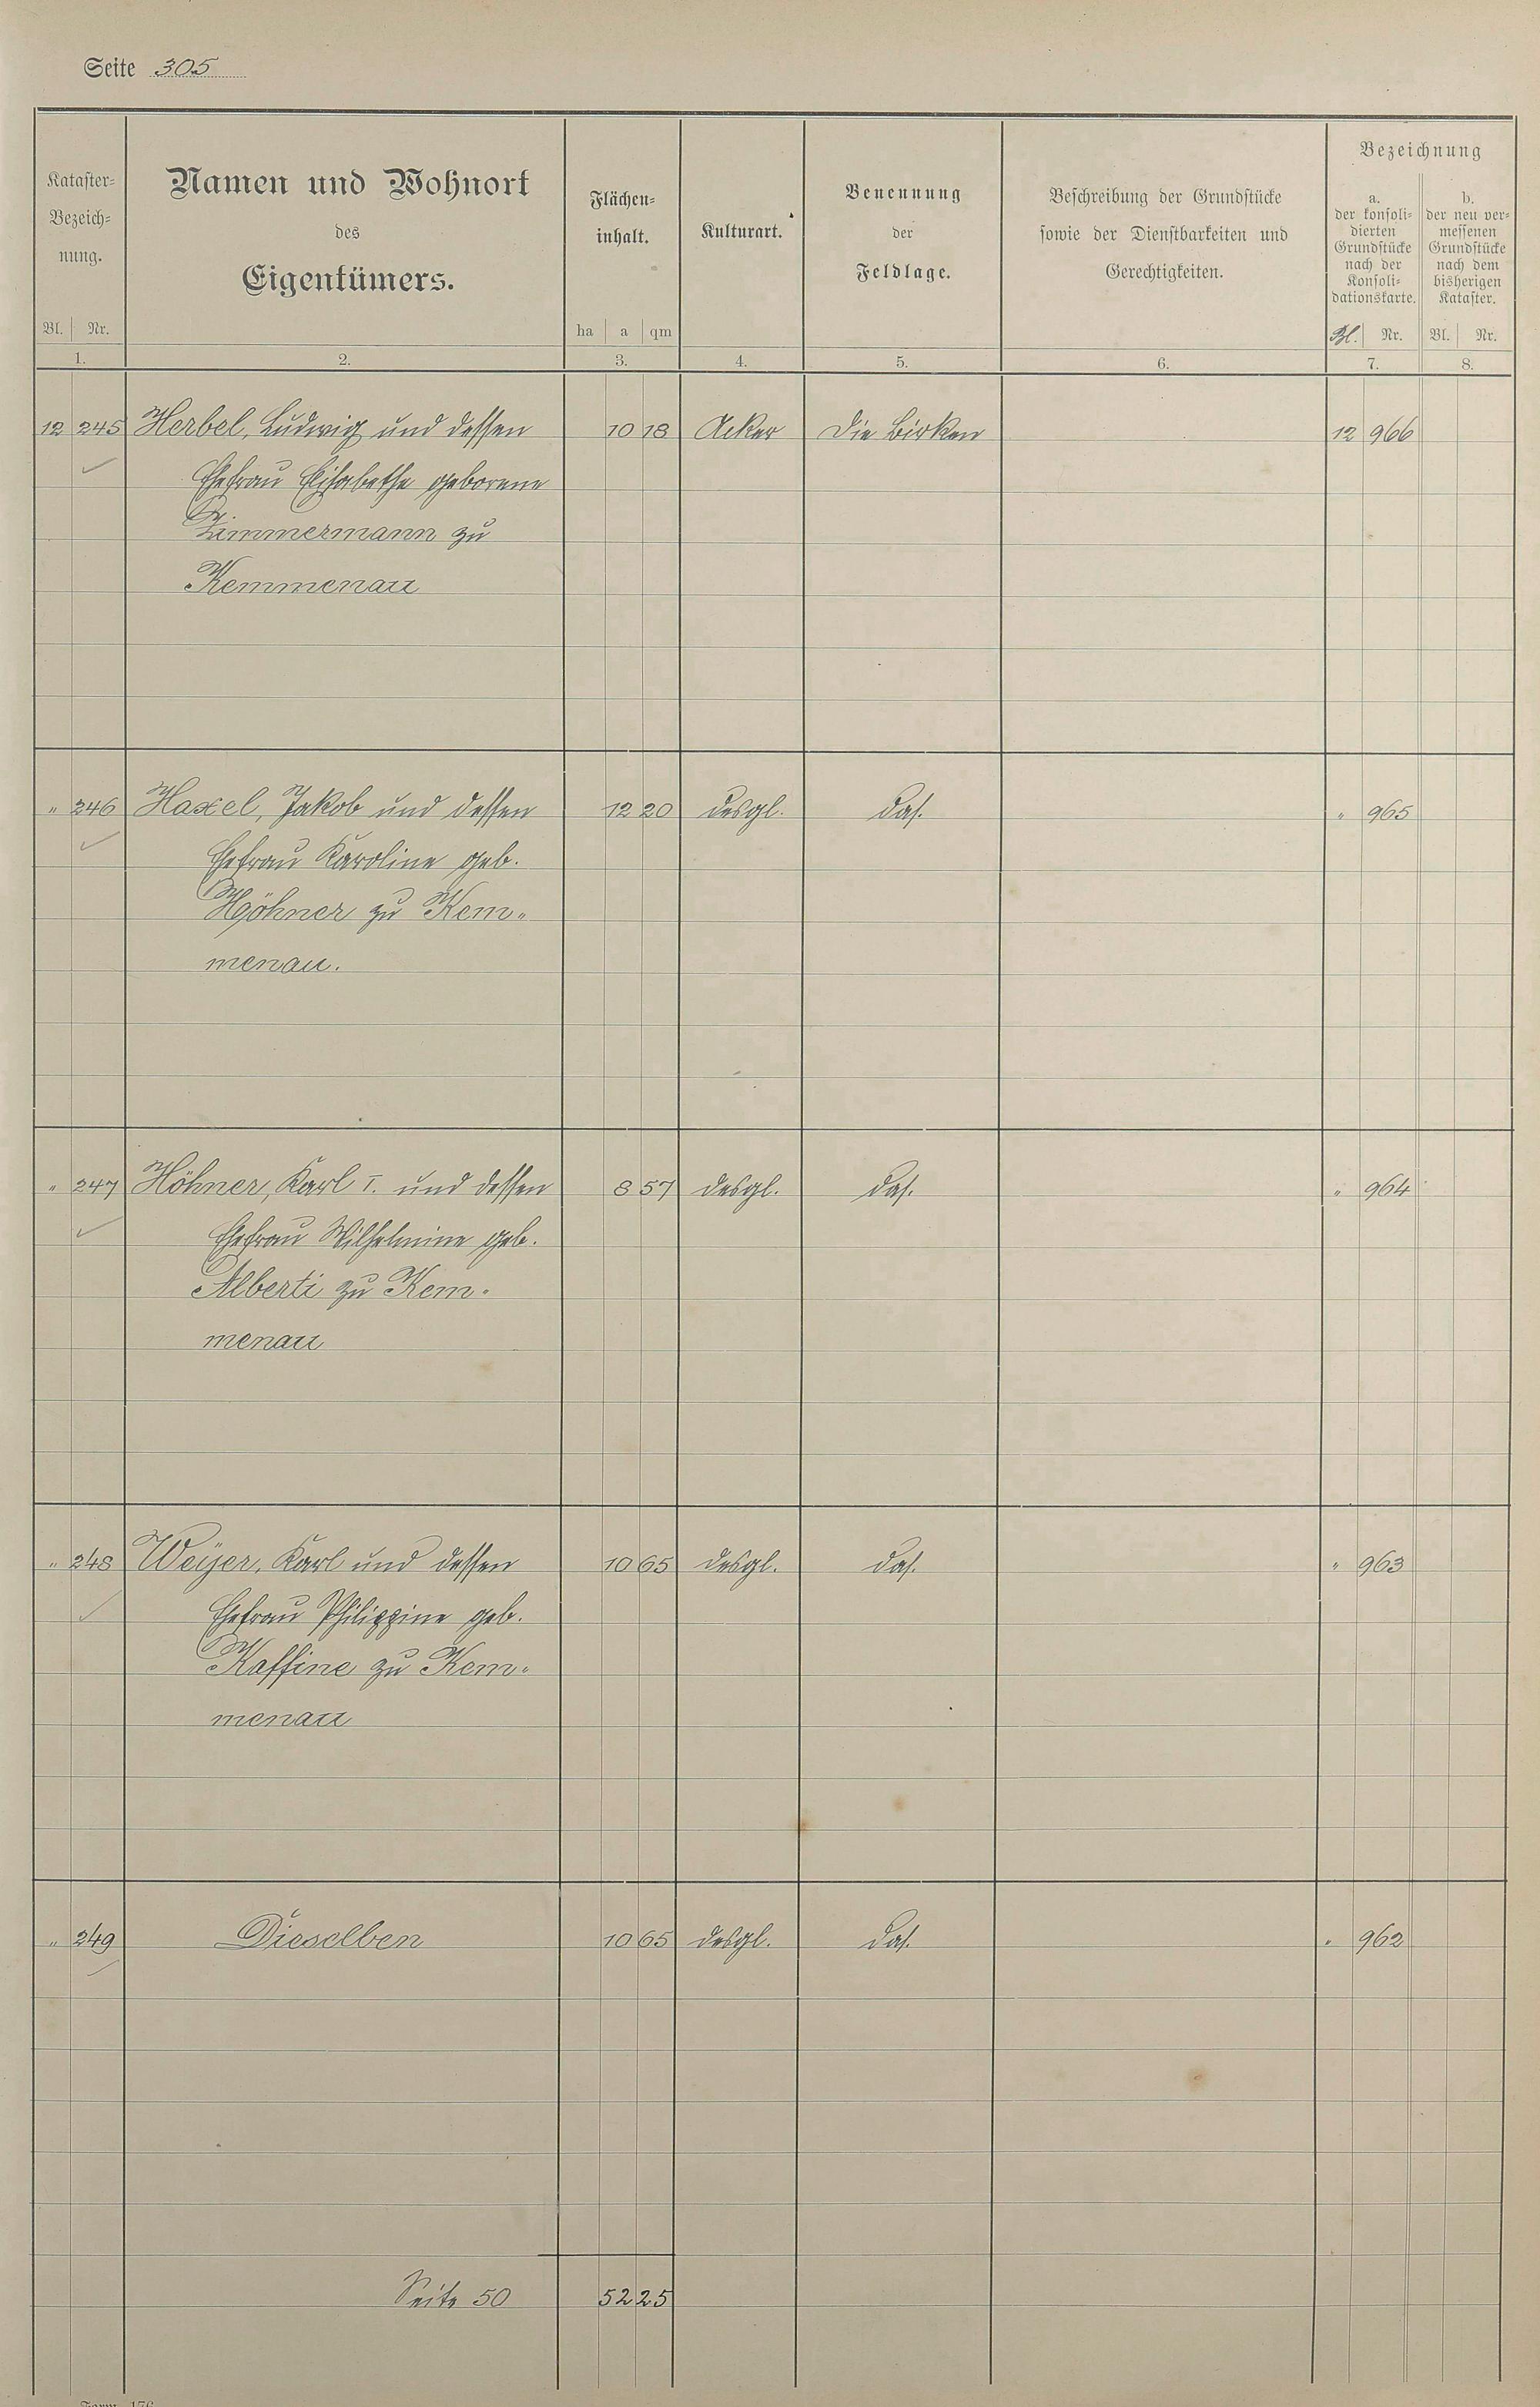 Seite 305
Kataster-
Bezeich-
nung.
Bl. Nr.
1.
Namen und Wohnort
des
Eigentümers.
2.
Flächen-
inhalt.
ha a qm
3.
Kulturart.
4.
Benennung
der
Feldlage.
5.
Beschreibung der Grundstücke
sowie der Dienstbarkeiten und
Gerechtigkeiten.
6.
Bezeichnung
a.
der konsoli-
dierten
Grundstücke
nach der
Konsoli-
dationskarte.
Bl. Nr.
7.
b.
der neu ver-
messenen
Grundstücke
nach dem
bisherigen
Kataster.
Bl. Nr.
8.
12 245 Herbel, Ludwig und dessen 10 18 Acker Die Birken 12 966
Ehefrau Elisabethe geborene
Zimmermann zu
Kemmenau
" 246 Haxel, Jakob und dessen 12 20 desgl. das. " 965
Ehefrau Karoline geb.
Höhner zu Kem-
menau.
" 247 Höhner, Karl I. und dessen 8 57 desgl. das. " 964
Ehefrau Wilhelmine geb.
Alberti zu Kem-
menau
" 248 Weijer, Karl und dessen 10 65 desgl. das. " 963
Ehefrau Philippine geb.
Kaffine zu Kem-
menau
" 249 Dieselben 10 65 desgl. das. " 962
Seite 50 52 25
Form. 176